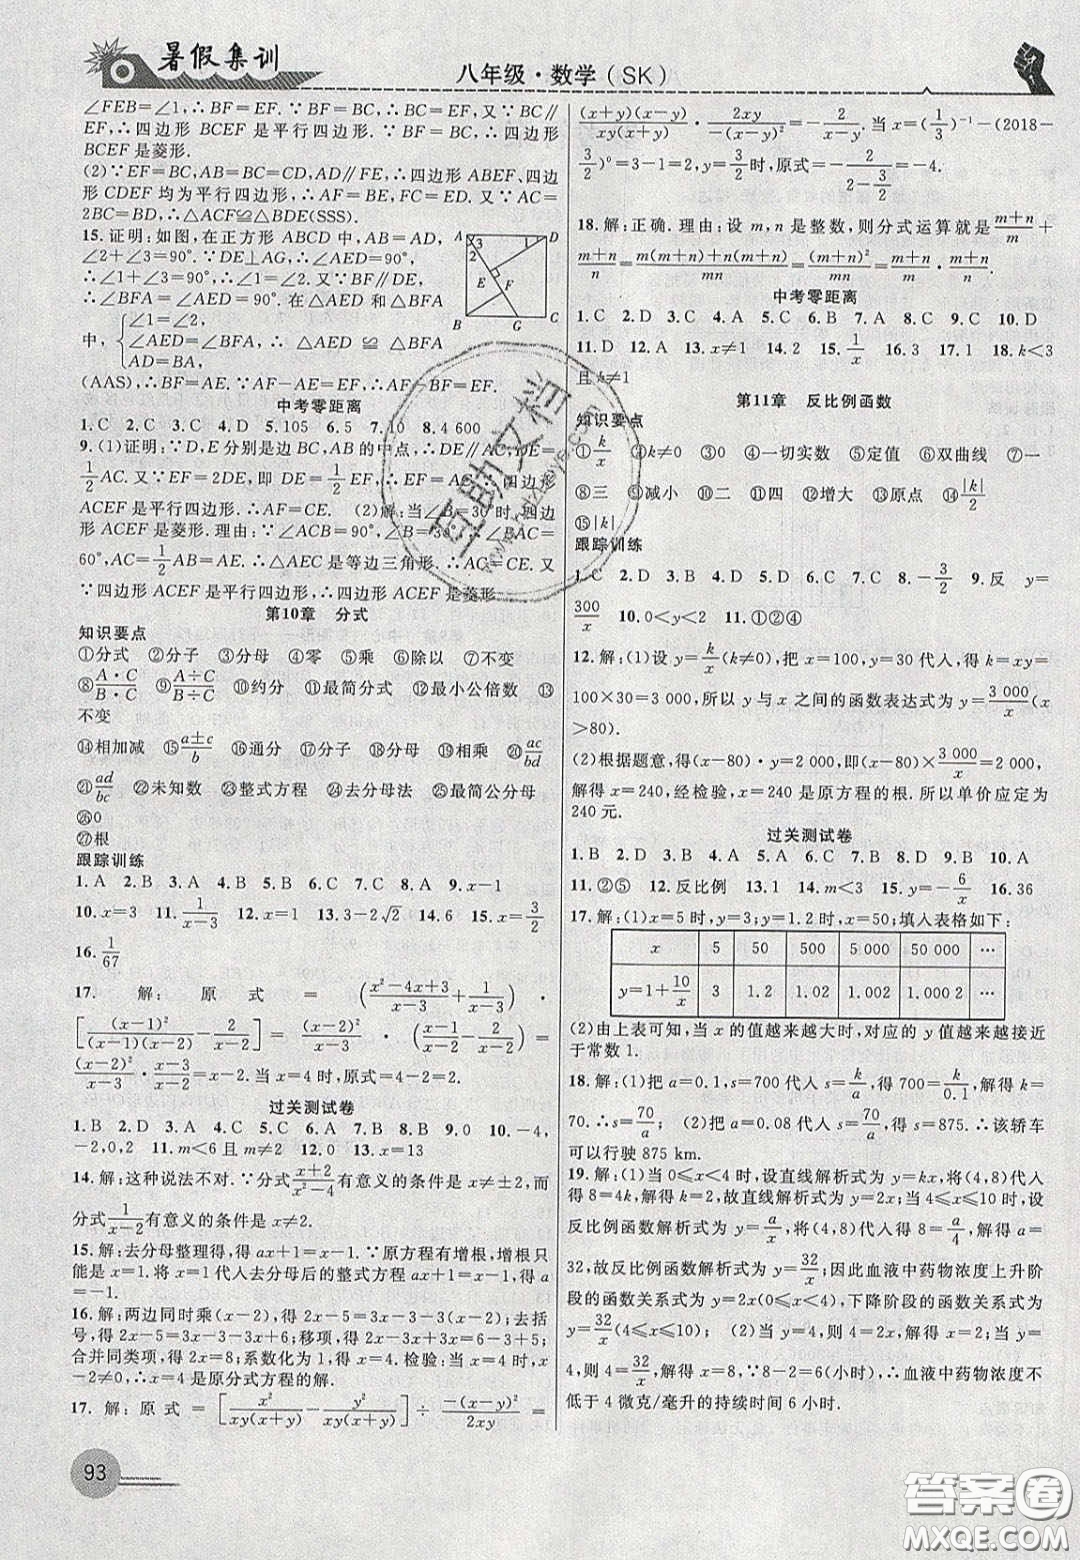 暑假集训
八年级·数学(SK)
∠FEB=∠1,∴BF=EF.∵BF=BC,∴BC=EF,又∵BC∥
EF,∴四边形 BCEF 是平行四边形.∵BF=BC,∴四边形
BCEF 是菱形.
(2)∵EF=BC,AB=BC,AD∥EF,∴四边形 ABEF、四边
形 CDEF 均为平行四边形,∴AF=BE,FC=ED.又∵AC=
2BC=BD,∴△ACF≌△BDE(SSS).
15.证明:如图,在正方形 ABCD 中,AB=AD,∵
∠2+∠3=90°.∵DE⊥AG,∴∠AED=90°.
∴∠1+∠3=90°,∴∠1=∠2.又∵BF∥DE,
∴∠BFA=∠AED=90°.在△AED 和△BFA
中,{∠1=∠2,
∠AED=∠BFA,∴△AED ≌ △BFA
AD=BA,
(AAS),∴BF=AE.∵AF-AE=EF,∴AF-BF=EF.
A D 3 1 2 E F B G C
中考零距离
1.C 2.C 3.D 4.D 5.105 6.5 7.10 8.4 600
9.(1)证明:∵D,E分别是边 BC,AB 的中点,∴DE∥AC,DE=
1/2AC.又∵DF=2DE,∴EF∥AC,EF=AC,∴四边形
ACEF 是平行四边形,∴AF=CE. (2)解:当∠B=30°时,四边
形 ACEF 是菱形.理由:∵∠ACB=90°,∠B=30°,∴∠BAC=
60°,AC=1/2AB=AE,∴△AEC 是等边三角形,∴AC=CE.又
∵四边形 ACEF 是平行四边形,∴四边形 ACEF 是菱形.
第10章 分式
知识要点
①分式 ②分子 ③分母 ④零 ⑤乘 ⑥除以 ⑦不变
⑧A·C/B·C ⑨A÷C/B÷C ⑩约分 ⑪最简分式 ⑫最小公倍数 ⑬
不变
⑭相加减 ⑮a±c/b ⑯通分 ⑰分子 ⑱分母 ⑲相乘 ⑳ac/bd
㉑ad/bc ㉒未知数 ㉓整式方程 ㉔去分母法 ㉕最简公分母
㉖0
㉗根
跟踪训练
1.A 2.B 3.A 4.B 5.B 6.C 7.C 8.A 9.x-1
10.x=3 11.1/x-3 12.x=1 13.3-2√2 14.6 15.x=3/2
16.1/67
17. 解:原式 = (x²-4x+3/x-3+1/x-3) ·
[(x-1)²/(x-1)(x-2)-2/x-2] = (x-2)²/x-3 · (x-1/x-2-2/x-2) =
(x-2)²/x-3·x-3/x-2=x-2.当x=4时,原式=4-2=2.
过关测试卷
1.B 2.D 3.A 4.C 5.C 6.D 7.B 8.B 9.0 10.-4,
-2,0,2 11.m<6且m≠4 12.0 13.x=13
14.解:这种说法不对.∵分式x+2/x²-4有意义的条件是x≠±2,而
分式1/x-2有意义的条件是x≠2.
15.解:去分母整理得,得ax+1=x-1.∵原方程有增根,增根只
能是x=1.将x=1代入去分母后的整式方程ax+1=x-1,得a
=-1.
16.解:两边同时乘(x-2),得2x-5=3x-3-3(x-2);去括
号,得2x-5=3x-3-3x+6;移项,得2x-3x+3x=-3+6+5;
合并同类项,得2x=8;系数化为1,得x=4.检验:当x=4时,x
-2≠0,∴x=4是原分式方程的解.
17. 解:原式 = [x²/xy(x+y)-y²/xy(x+y)] ÷ -(x-y)²/2xy =
(x+y)(x-y)/xy(x+y)·2xy/-(x-y)²=-2/x-y.当x=(1/3)⁻¹-(2018-
3/2)⁰=3-1=2,y=3/2时,原式=-2/2-3/2=-4.
18.解:正确.理由:设m,n是整数,则分式运算就是m+n/m+
m+n/n=m(m+n)+n(m+n)/mn=(m+n)²/mn=m+n/m·m+n/n.
中考零距离
1.C 2.D 3.C 4.A 5.C 6.B 7.A 8.C 9.C 10.D
11.D 12.A 13.x≠1 14.2 15.1/x 16.3 17.1 18.k<3
且k≠1
第11章 反比例函数
知识要点
①k/x ②k≠0 ③0 ④一切实数 ⑤定值 ⑥双曲线 ⑦一
⑧三 ⑨减小 ⑩二 ⑪四 ⑫增大 ⑬原点 ⑭|k|/2
⑮|k|
跟踪训练
1.C 2.D 3.D 4.C 5.B 6.C 7.C 8.-3/2 9.反 y=
300/x 10.0<y<2 11.①②④
12.解:(1)设y=k/x(k≠0),把x=100,y=30代入,得k=xy=
100×30=3 000,所以y与x之间的函数表达式为y=3 000/x(x
>80).
(2)根据题意,得(x-80)·y=2 000,即(x-80)×3 000/x=2 000,
解得x=240,经检验,x=240是原方程的根.所以单价应定为
240元.
过关测试卷
1.B 2.D 3.B 4.A 5.A 6.D 7.B 8.B 9.B 10.A
11.②⑤ 12.反比例 13.1 14.m<3 15.y=-6/x 16.36
17.解:(1)x=5时,y=3;y=1.2时,x=50;填入表格如下:
x 5 50 500 5 000 50 000 …
y=1+10/x 3 1.2 1.02 1.002 1.000 2 …
(2)由上表可知,当x的值越来越大时,对应的y值越来越接近
于常数1.
18.解:(1)把a=0.1,s=700代入s=k/a,得700=k/0.1,解得k=
70.∴s=70/a. (2)把a=0.08代入s=70/a,得s=875,∴该轿车
可以行驶875 km.
19.解:(1)当0≤x<4时,设直线解析式为y=kx,将(4,8)代入
得8=4k,解得k=2,故直线解析式为y=2x;当4≤x≤10时,设
反比例函数解析式为y=a/x,将(4,8)代入得8=a/4,解得a=
32,故反比例函数解析式为y=32/x;因此血液中药物浓度上升阶
段的函数关系式为y=2x(0≤x<4),下降阶段的函数关系式为
y=32/x(4≤x≤10). (2)当y=4,则4=2x,解得x=2,当y=
4,则4=32/x,解得x=8,∵8-2=6(小时),∴血液中药物浓度不
低于4微克/毫升的持续时间6小时.
93
互助文档
答案圈
MXQE.COM